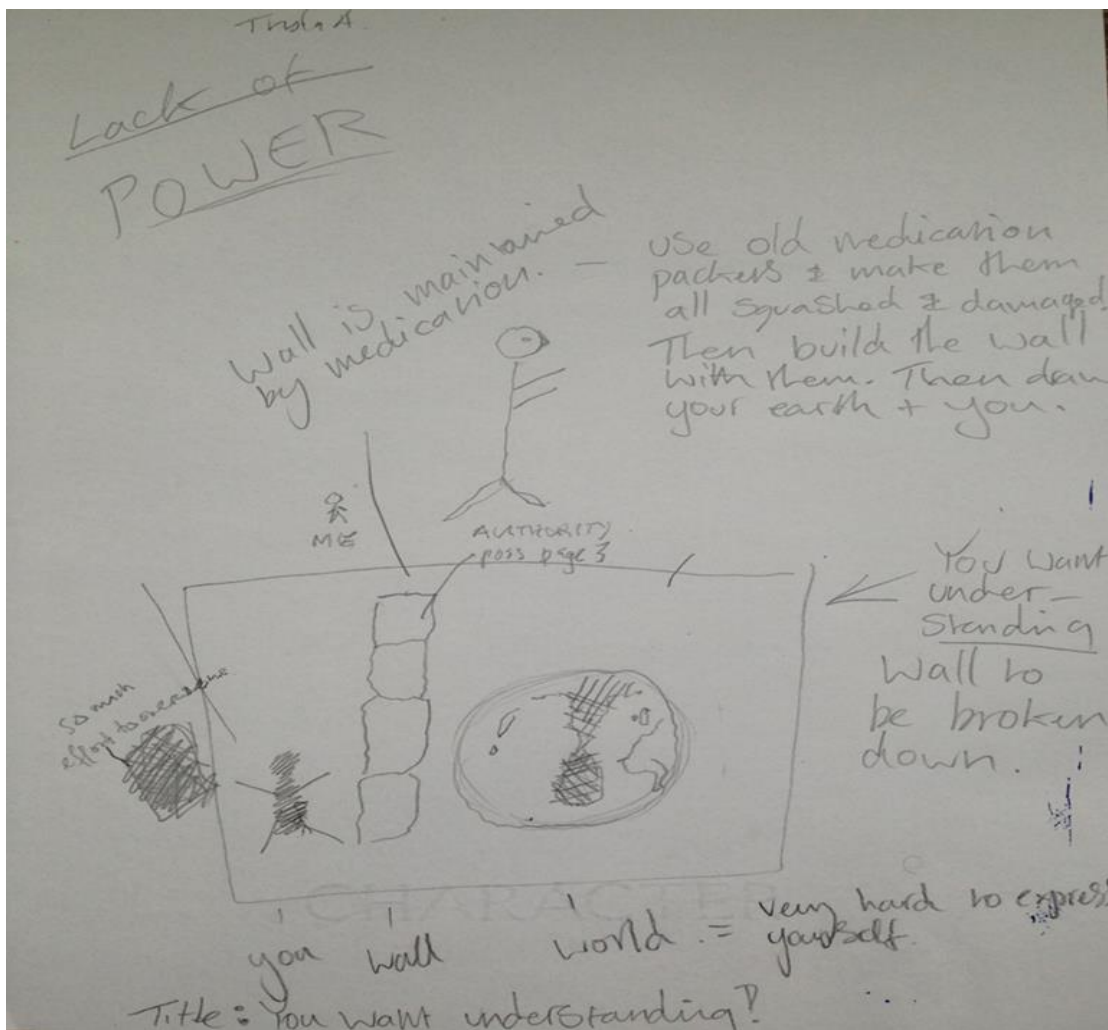 Lack of
POWER
Wall is maintained
by medication. —
use old medication
packers & make them
all squashed & damaged.
Then build the wall
with them. Then draw
your earth + you.
ME
AUTHORITY
poss page 3
You want
under-
standing
Wall to
be broken
down.
so much
effort to overcome
CHARACTER
you wall world = very hard to express
yourself.
Title: You want understanding?